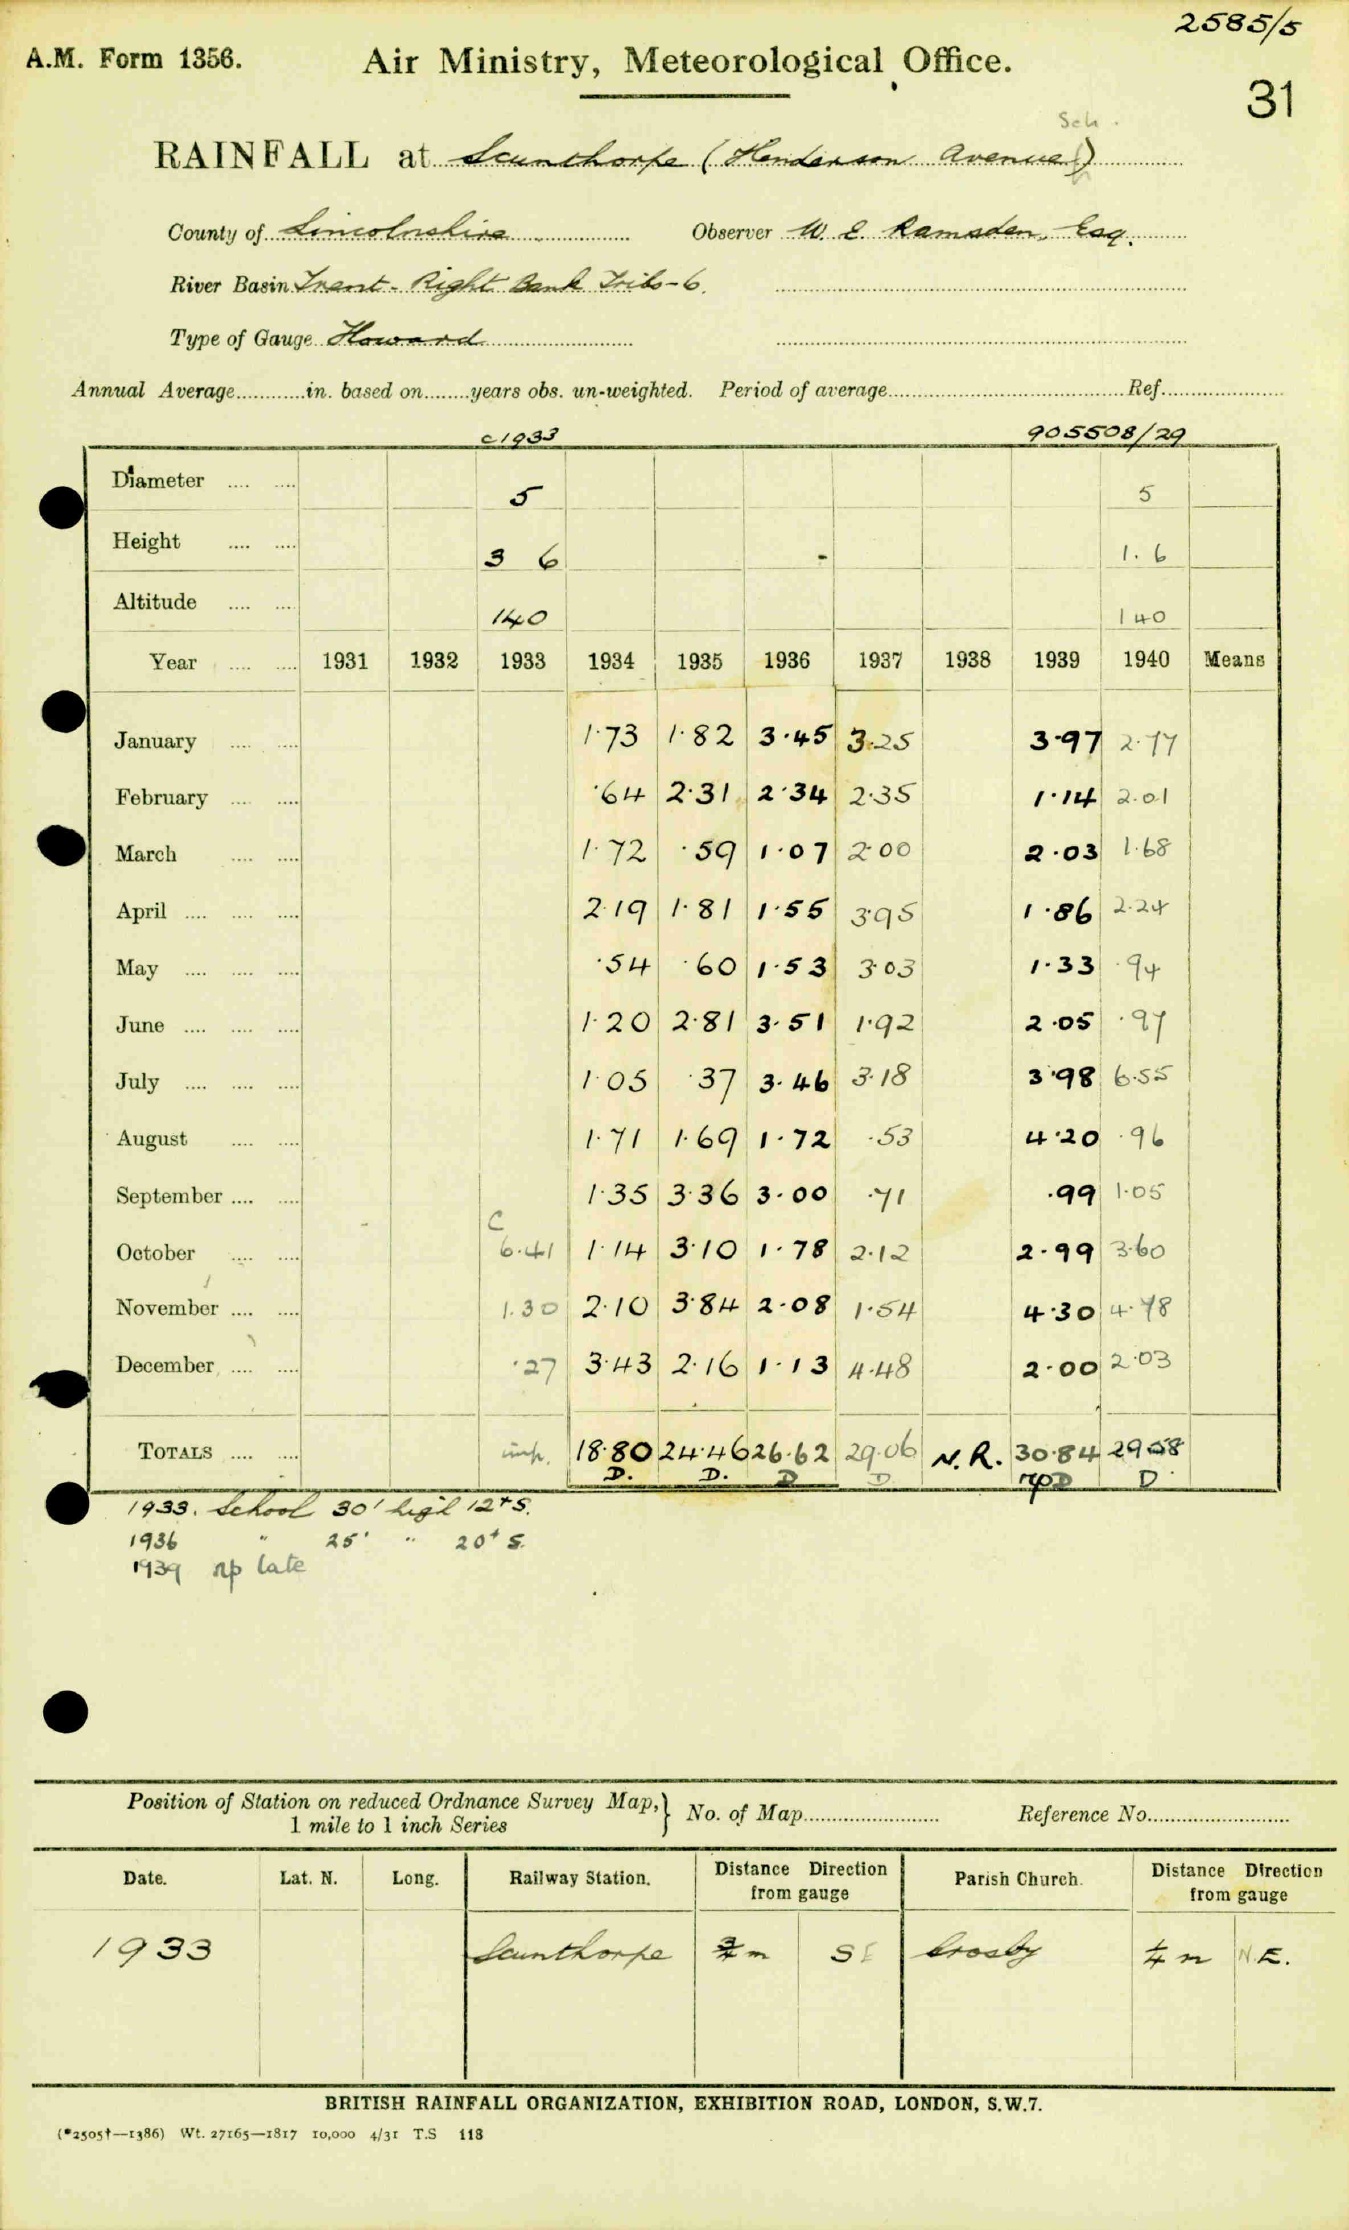 2585/5
A.M. Form 1356. Air Ministry, Meteorological Office.
31
Sch.
RAINFALL at Scunthorpe (Henderson Avenue)
County of Lincolnshire Observer W. E. Ramsden, Esq.
River Basin Trent - Right Bank Tribs-6.
Type of Gauge Howard
Annual Average............in. based on........years obs. un-weighted. Period of average.......... Ref..........
c1933 905508/29
Diameter .... .... 5 5
Height .... .... 3 6 1. 6
Altitude .... .... 140 140
Year .... .... 1931 1932 1933 1934 1935 1936 1937 1938 1939 1940 Means
January .... .... 1.73 1.82 3.45 3.25 3.97 2.77
February .... .... .64 2.31 2.34 2.35 1.14 2.01
March .... .... 1.72 .59 1.07 2.00 2.03 1.68
April .... .... .... 2.19 1.81 1.55 3.95 1.86 2.24
May .... .... .... .54 .60 1.53 3.03 1.33 .94
June .... .... .... 1.20 2.81 3.51 1.92 2.05 .97
July .... .... .... 1.05 .37 3.46 3.18 3.98 6.55
August .... .... 1.71 1.69 1.72 .53 4.20 .96
September .... .... 1.35 3.36 3.00 .71 .99 1.05
C
October .... .... 6.41 1.14 3.10 1.78 2.12 2.99 3.60
November .... .... 1.30 2.10 3.84 2.08 1.54 4.30 4.78
December .... .... .27 3.43 2.16 1.13 4.48 2.00 2.03
TOTALS .... .... imp. 18.80 24.46 26.62 29.06 N.R. 30.84 29.58
D. D. D D D D
1933. School 30' high 12+ S.
1936 " 25' " 20+ S.
1939 rp late
Position of Station on reduced Ordnance Survey Map, } No. of Map.......... Reference No..........
1 mile to 1 inch Series
Date. Lat. N. Long. Railway Station. Distance Direction from gauge Parish Church. Distance Direction from gauge
1933 Scunthorpe 3/4 m SE Crosby 1/4 m N.E.
BRITISH RAINFALL ORGANIZATION, EXHIBITION ROAD, LONDON, S.W.7.
(*2505†—1386) Wt. 27165—1817 10,000 4/31 T.S 118